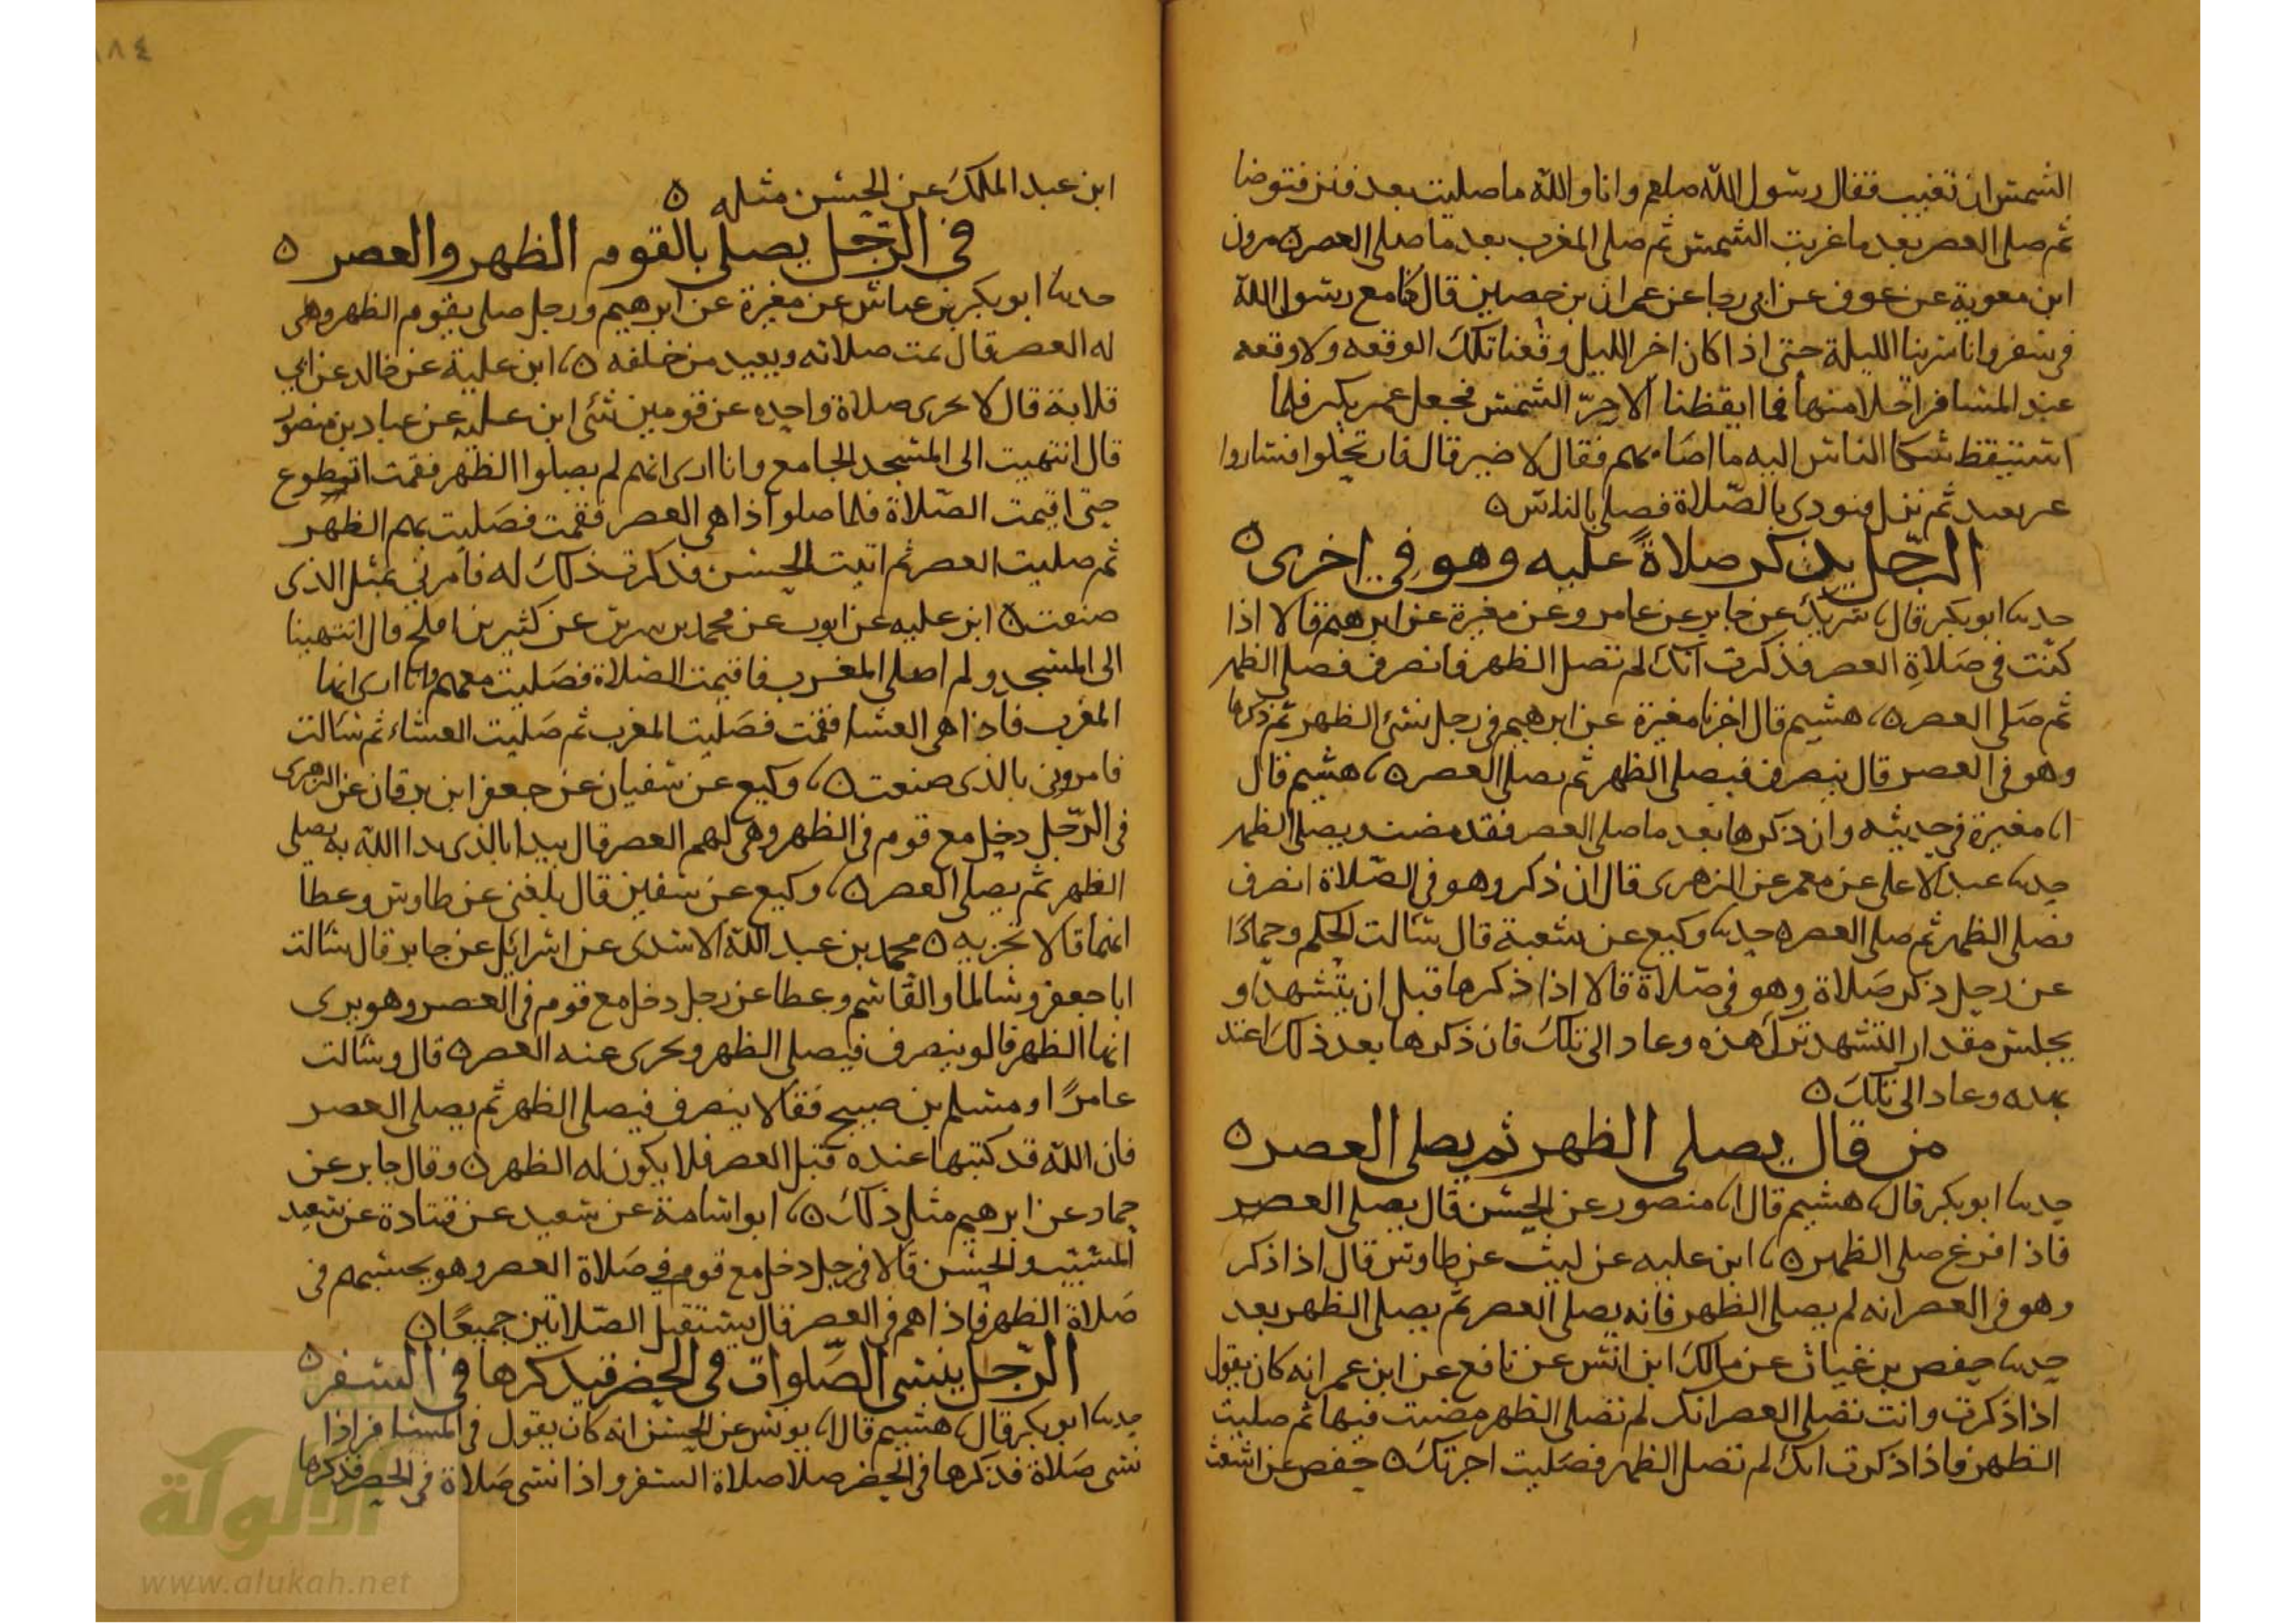 الشمس ان تغيب فقال رسول الله صلعم وانا والله ما صليت بعد فنزل فتوضا
ثم صلى العصر بعد ما غربت الشمس ثم صلى المغرب بعد ما صلى العصر ه مرون
ابن معوية عن عوف عن ابى رجا عن عمران بن حصين قال كنا مع رسول الله
فى سفر وانا سرينا الليلة حتى اذا كان اخر الليل وقعنا تلك الوقعه ولا وقعه
عند المسافر احلا منها فما ايقظنا الا حر الشمس فجعل عمر يكبر فلما
استيقظ شكا الناس اليه ما اصابهم فقال لا ضير قال فارتحلوا فساروا
غير بعيد ثم نزل فنودى بالصلاة فصلى بالناس ه
الرجل يذكر صلاة عليه وهو فى اخرى ه
حدثنا ابو بكر قال نا شريك عن جابر عن عامر وعن مغيرة عن ابرهيم قالا اذا
كنت فى صلاة العصر فذكرت انك لم تصل الظهر فانصرف فصلى الظهر
ثم صلى العصر ه نا هشيم قال اخبرنا مغيرة عن ابرهيم فى رجل نسى الظهر ثم ذكرها
وهو فى العصر قال ينصرف فيصلى الظهر ثم يصلى العصر ه نا هشيم قال
انا مغيرة فى حديثه وان ذكرها بعد ما صلى العصر فقد مضت ويصلى الظهر
حدثنا عبد الاعلى عن معمر عن الزهرى قال ان ذكر وهو فى الصلاة انصرف
فصلى الظهر ثم صلى العصر ه حدثنا وكيع عن شعبة قال سالت الحكم وحمادا
عن رجل ذكر صلاة وهو فى صلاة قالا اذا ذكرها قبل ان يتشهد او
يجلس مقدار التشهد ترك هذه وعاد الى تلك فان ذكرها بعد ذلك اعتد
بهذه وعاد الى تلك ه
من قال يصلى الظهر ثم يصلى العصر ه
حدثنا ابو بكر قال نا هشيم قال انا منصور عن الحسن قال يصلى العصر
فاذا فرغ صلى الظهر ه نا ابن عليه عن ليث عن طاوس قال اذا ذكر
وهو فى العصر انه لم يصلى الظهر فانه يصلى العصر ثم يصلى الظهر بعد
حدثنا حفص بن غياث عن مالك ابن انس عن نافع عن ابن عمر انه كان يقول
اذا ذكرت وانت تصلى العصر انك لم تصلى الظهر مضيت فيها ثم صليت
الظهر فاذا ذكرت انك لم تصل الظهر فصليت اجزتك ه حفص عن اشعث
١٨٤
ابن عبد الملك عن الحسن مثله ه
فى الرجل يصلى بالقوم الظهر والعصر ه
حدثنا ابو بكر بن عياش عن مغيرة عن ابرهيم ورجل صلى بقوم الظهر وهى
له العصر قال تمت صلاته ويعيد من خلفه ه نا ابن علية عن خالد عن ابى
قلابة قال لا تجزى صلاة واحده عن قومين شتى ابن عليه عن عباد بن منصور
قال انتهيت الى المسجد الجامع وانا ارى انهم لم يصلوا الظهر فقمت اتطوع
حتى اقيمت الصلاة فلما صلوا اذا هى العصر فقمت فصليت بهم الظهر
ثم صليت العصر ثم اتيت الحسن فذكرت ذلك له فامرنى بمثل الذى
صنعت ه ابن عليه عن ايوب عن محمد بن سيرين عن كثير بن افلح قال انتهينا
الى المسجد ولم اصلى المغرب فاقيمت الصلاة فصليت معهم وانا ارى انها
المغرب فاذا هى العشا فقمت فصليت المغرب ثم صليت العشاء ثم سالت
فامرونى بالذى صنعت ه نا وكيع عن سفيان عن جعفر ابن برقان عن الزهرى
فى الرجل دخل مع قوم فى الظهر وهى لهم العصر قال يبدا بالذى بدا الله به يصلى
الظهر ثم يصلى العصر ه نا وكيع عن سفين قال بلغنى عن طاوس وعطا
انهما قالا تجزيه ه محمد بن عبد الله الاسدى عن اسرائيل عن جابر قال سالت
ابا جعفر وسالما والقاسم وعطا عن رجل دخل مع قوم فى العصر وهو يرى
انها الظهر قالو ينصرف فيصلى الظهر وتجزى عنه العصر ه قال وسالت
عامرا ومسلم بن صبيح فقالا ينصرف فيصلى الظهر ثم يصلى العصر
فان الله قد كتبها عنده قبل العصر فلا يكون له الظهر ه وقال جابر عن
حماد عن ابرهيم مثل ذلك ه نا ابو اسامة عن سعيد عن قتادة عن سعيد
المسيب والحسن قالا فى رجل دخل مع قوم فى صلاة العصر وهو يحسبهم فى
صلاة الظهر فاذا هم فى العصر قال يستقبل الصلاتين جميعا ه
الرجل ينسى الصلوات فى الحضر فيذكرها فى السفر ه
حدثنا ابو بكر قال نا هشيم قال انا يونس عن الحسن انه كان يقول فى المسافر اذا
نسى صلاة فذكرها فى الحضر صلا صلاة السفر واذا نسى صلاة فى الحضر فذكرها
الألوكة
www.alukah.net